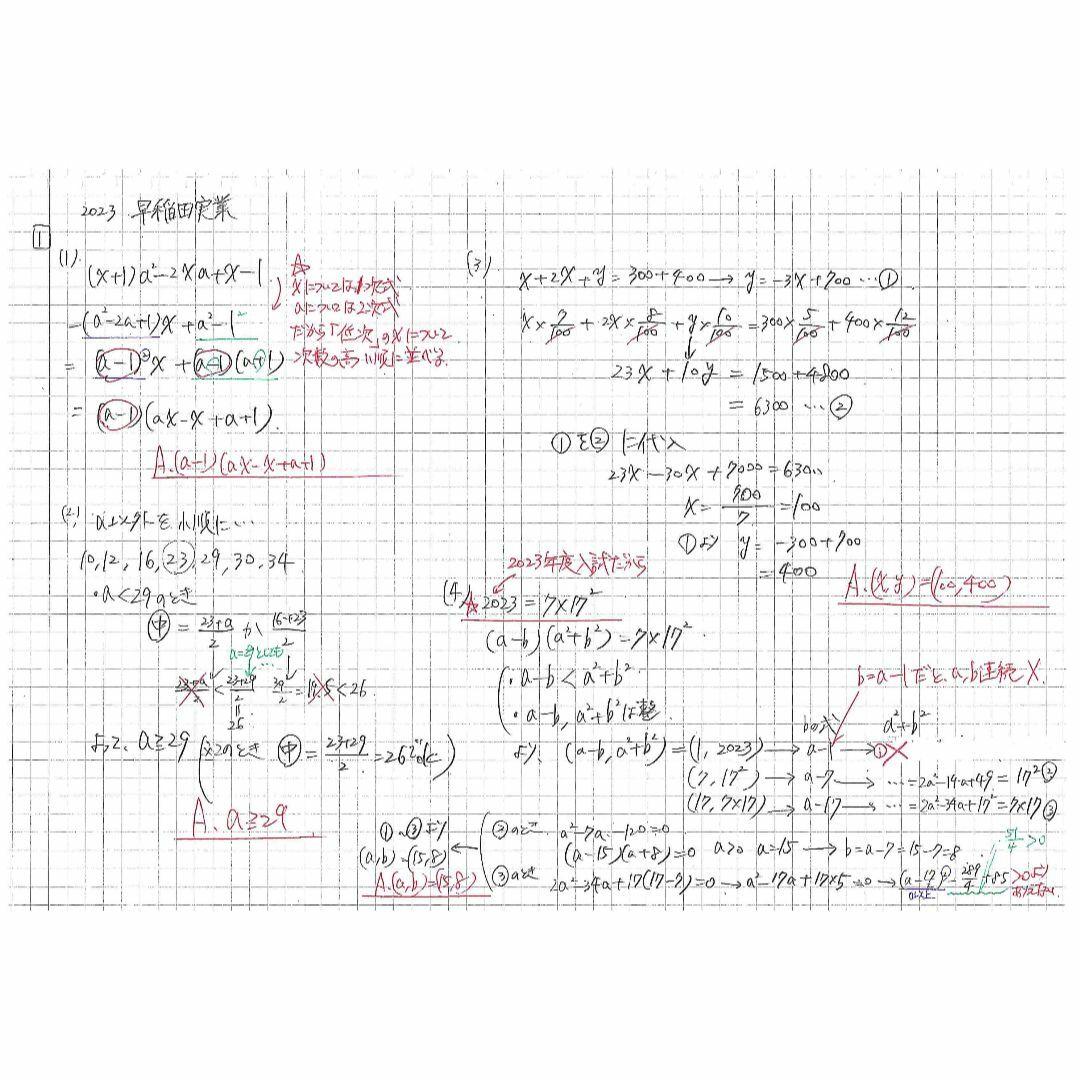 2023 早稲田実業
1
(1).
(x+1)a²-2xa+x-1
=(a²-2a+1)x+a²-1²
= (a-1)²x+(a-1)(a+1)
= (a-1)(ax-x+a+1).
A.(a-1)(ax-x+a+1)
☆
xについては1次式
aについては2次式
だから「低次」のxについて
次数の高い順に並べる.
(2) a以外を小順に…
10,12,16,23,29,30,34
・a<29のとき
中 = 23+a/2 か 16+23/2
23+a/2 < 23+29/2 39/2 = 19.5 < 26
26
よって、a≧29 (このとき 中 = 23+29/2 = 26でok)
A. a≧29
(3).
x+2x+y=300+400→ y=-3x+700 …①
x×7/100 + 2x×8/100 + y×10/100 = 300×5/100 + 400×12/100
23x+10y = 1500+4800
= 6300 …②
①を②に代入
23x-30x+7000=6300
x= 700/7 =100
①より y= -300+700
= 400
A.(x,y)=(100,400)
2023年度入試だから
(4) ☆ 2023 = 7×17²
(a-b)(a²+b²)=7×17².
・a-b<a²+b²
・a-b, a²+b²は整
b=a-1だと、a,b連続 ×.
bの式 a²+b²
より (a-b, a²+b²)=(1, 2023)→ a-1 →①×
(7, 17²) → a-7 → …=2a²-14a+49=17²②
(17, 7×17)→ a-17→ …=2a²-34a+17²=7×17③
②のとき a²-7a-120=0
(a-15)(a+8)=0 a>0 a=15 → b=a-7=15-7=8
③のとき 2a²-34a+17(17-7)=0→a²-17a+17×5=0→(a-17/2)²-289/4+85
51/4>0
>0より
①~③より
(a,b)=(15,8)
A.(a,b)=(15,8)